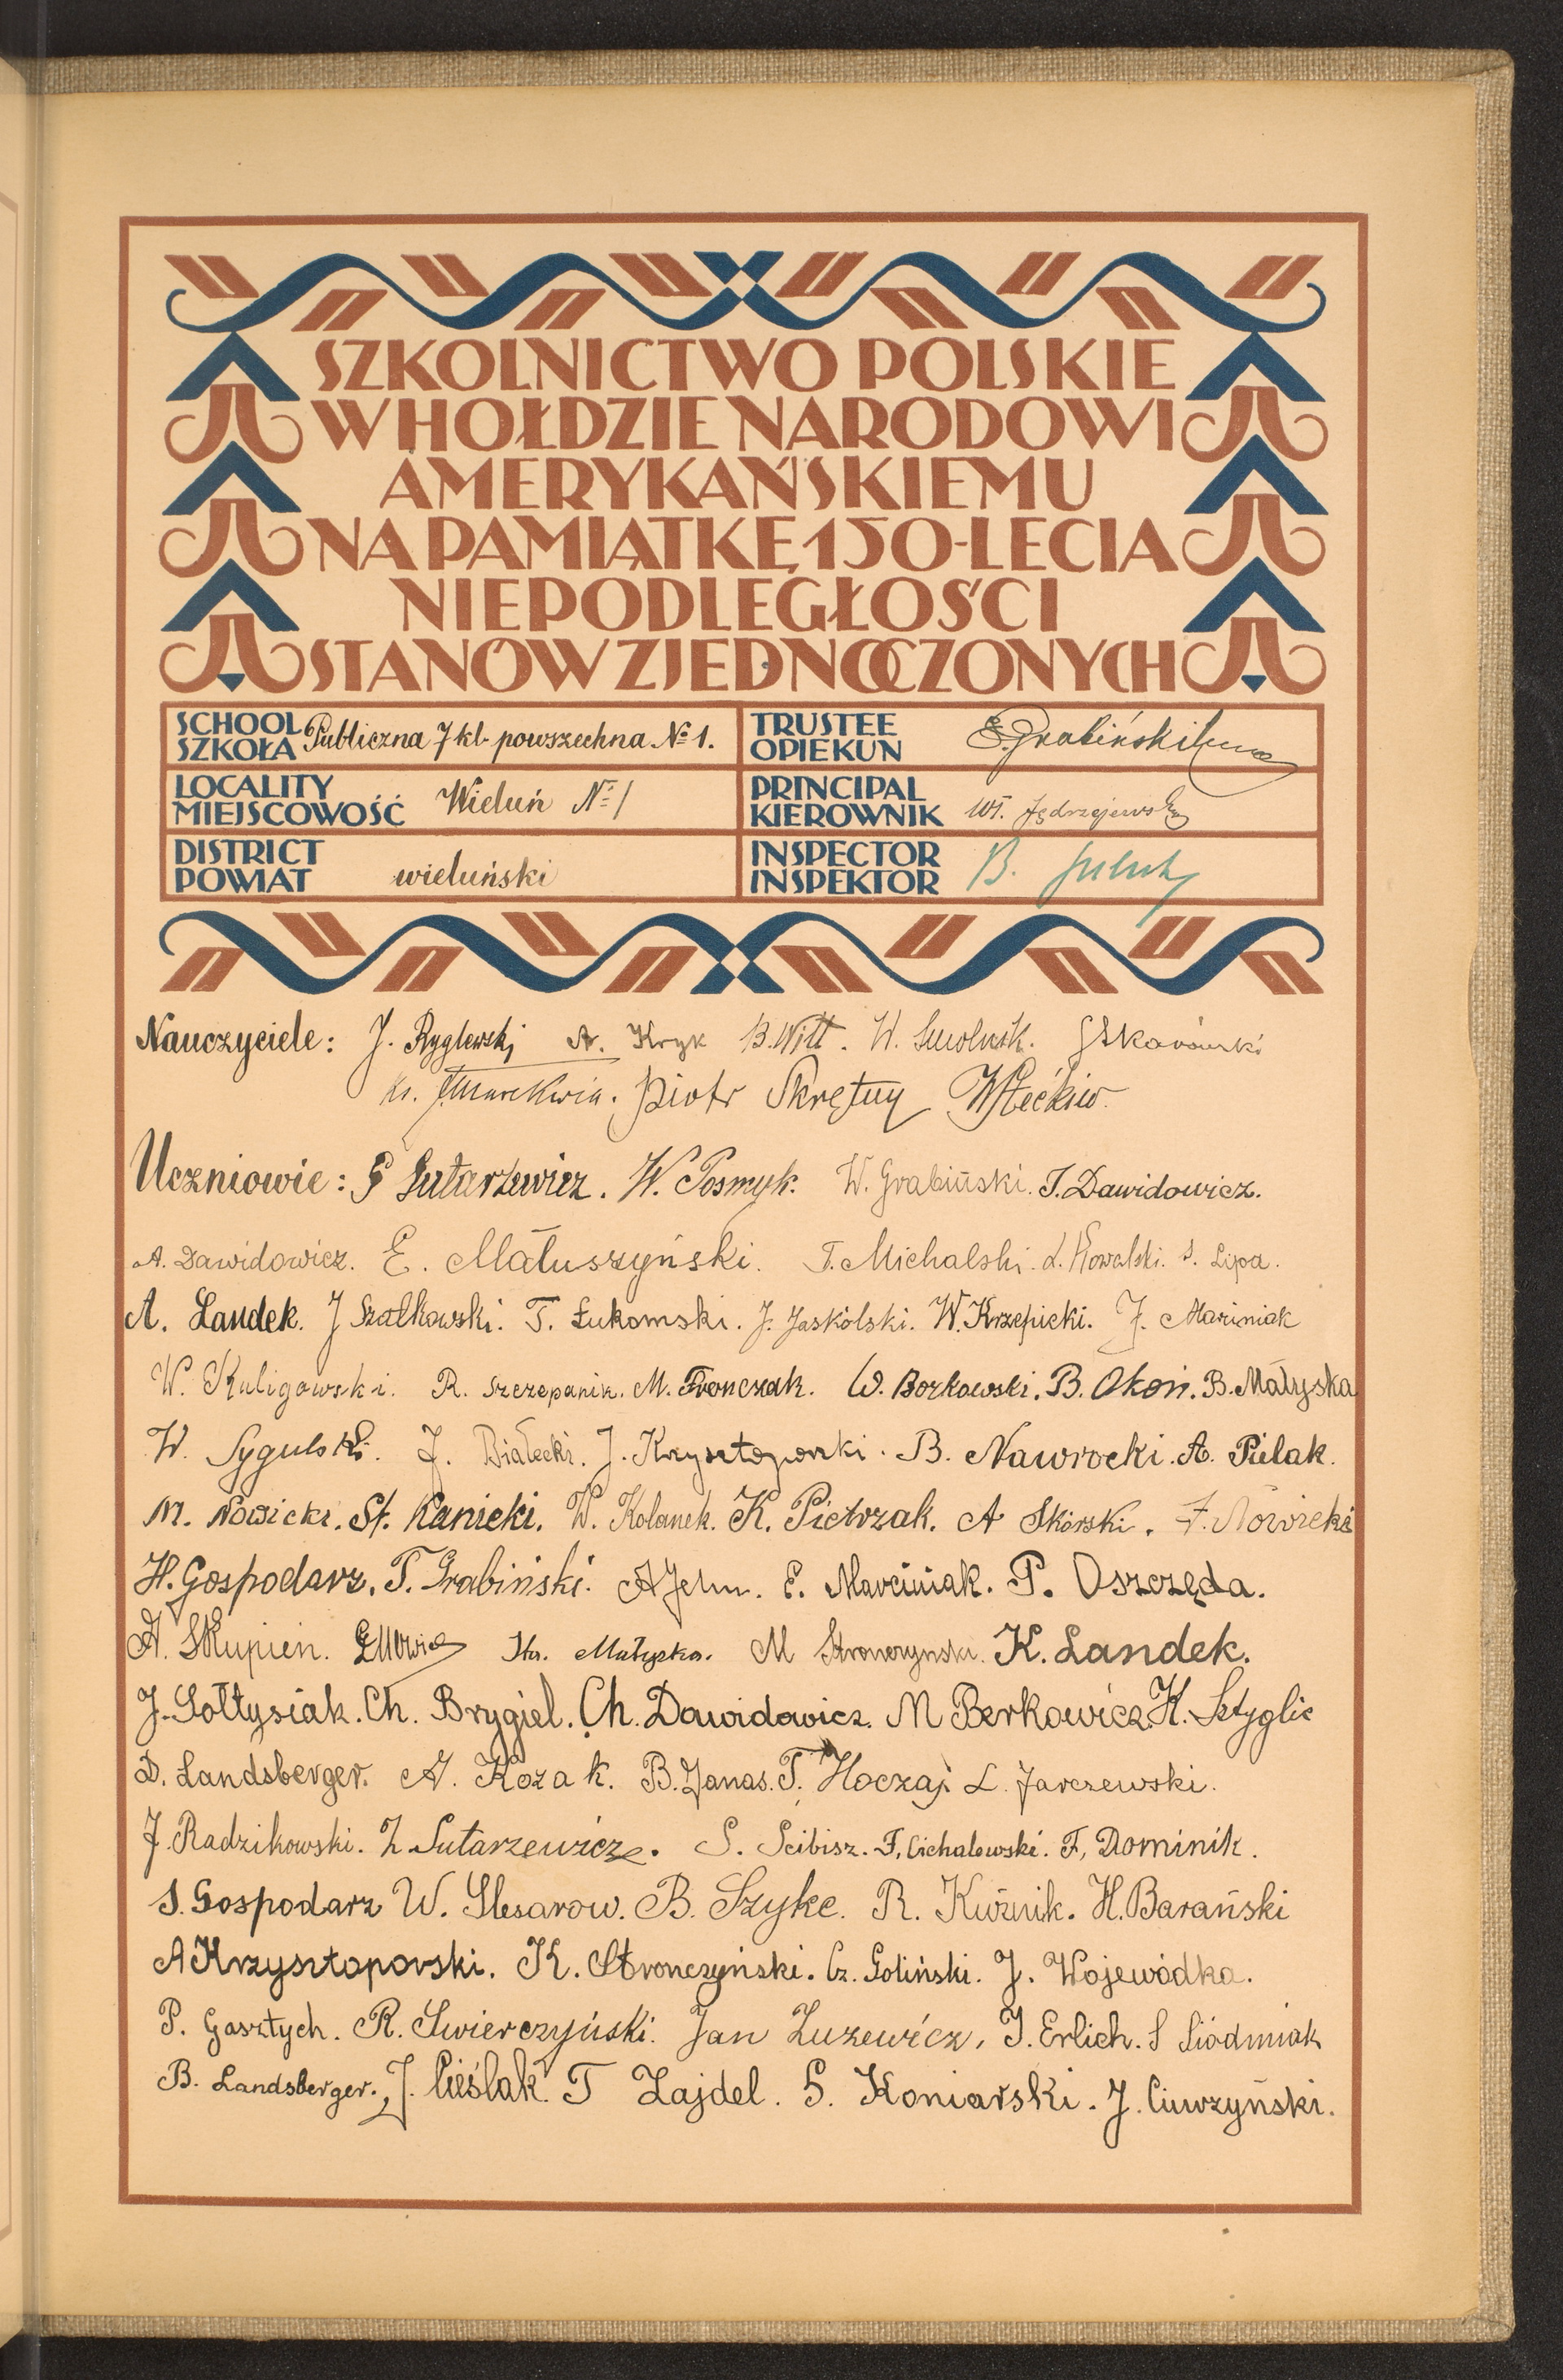 SZKOLNICTWO POLSKIE
W HOŁDZIE NARODOWI
AMERYKAŃSKIEMU
NA PAMIĄTKĘ 150-LECIA
NIEPODLEGŁOŚCI
STANÓW ZJEDNOCZONYCH
SCHOOL
SZKOŁA Publiczna 7 kl. powszechna № 1.
TRUSTEE
OPIEKUN E. Grabiński
LOCALITY
MIEJSCOWOŚĆ Wieluń № 1
PRINCIPAL
KIEROWNIK Wł. Jędrzejewski
DISTRICT
POWIAT wieluński
INSPECTOR
INSPEKTOR B.
Nauczyciele: J. Ryglewski A. Kryk B. Witt. W. Smolnik. Skarówski
Ks. Piotr Skrętny
Uczniowie: Sutarzewicz. W. Posmyk. W. Grabiński. J. Dawidowicz.
A. Dawidowicz. E. Małuszyński. T. Michalski. L. Kowalski. S. Lipa.
A. Landek. J Szałkowski. T. Łukomski. J. Jaskólski. W. Krzepicki. J. Mariniak
W. Kuligowski. R. Szczepanik. M. Fronczak. W. Borkowski. B. Okoń. B. Małyska
W. Sygulski. J. Białecki. J. Krzysztoporski. B. Nawrocki. A. Pielak.
M. Nowicki. St. Kanicki. W. Kolanek. K. Pietrzak. A Skórski. F. Nowicki
H. Gospodarz. T. Grabiński. A Jelin. E. Marciniak. P. Oszczęda.
A. Skupień. Małyska. M Stronczynski. K. Landek.
J. Sołtysiak. Ch. Brygiel. Ch. Dawidowicz. M Berkowicz. H. Sztyglic
D. Landsberger. A. Kozak. B. Janas. T. Hoczaj. L. Jarczewski.
J. Radzikowski. Z. Sutarzewicz. S. Ścibisz. F. Cichalewski. F. Dominik.
S. Gospodarz W. Ślesarow. B. Szyke. R. Kuźnik. H. Barański
A Krzysztoporski. K. Stronczyński. Cz. Goliński. J. Wojewódka.
P. Gasztych. R. Świerczyński. Jan Luzewicz, J. Erlich. S Siódmiak
B. Landsberger. J. Cieślak. T Zajdel. S. Koniarski. J. Ciurzyński.